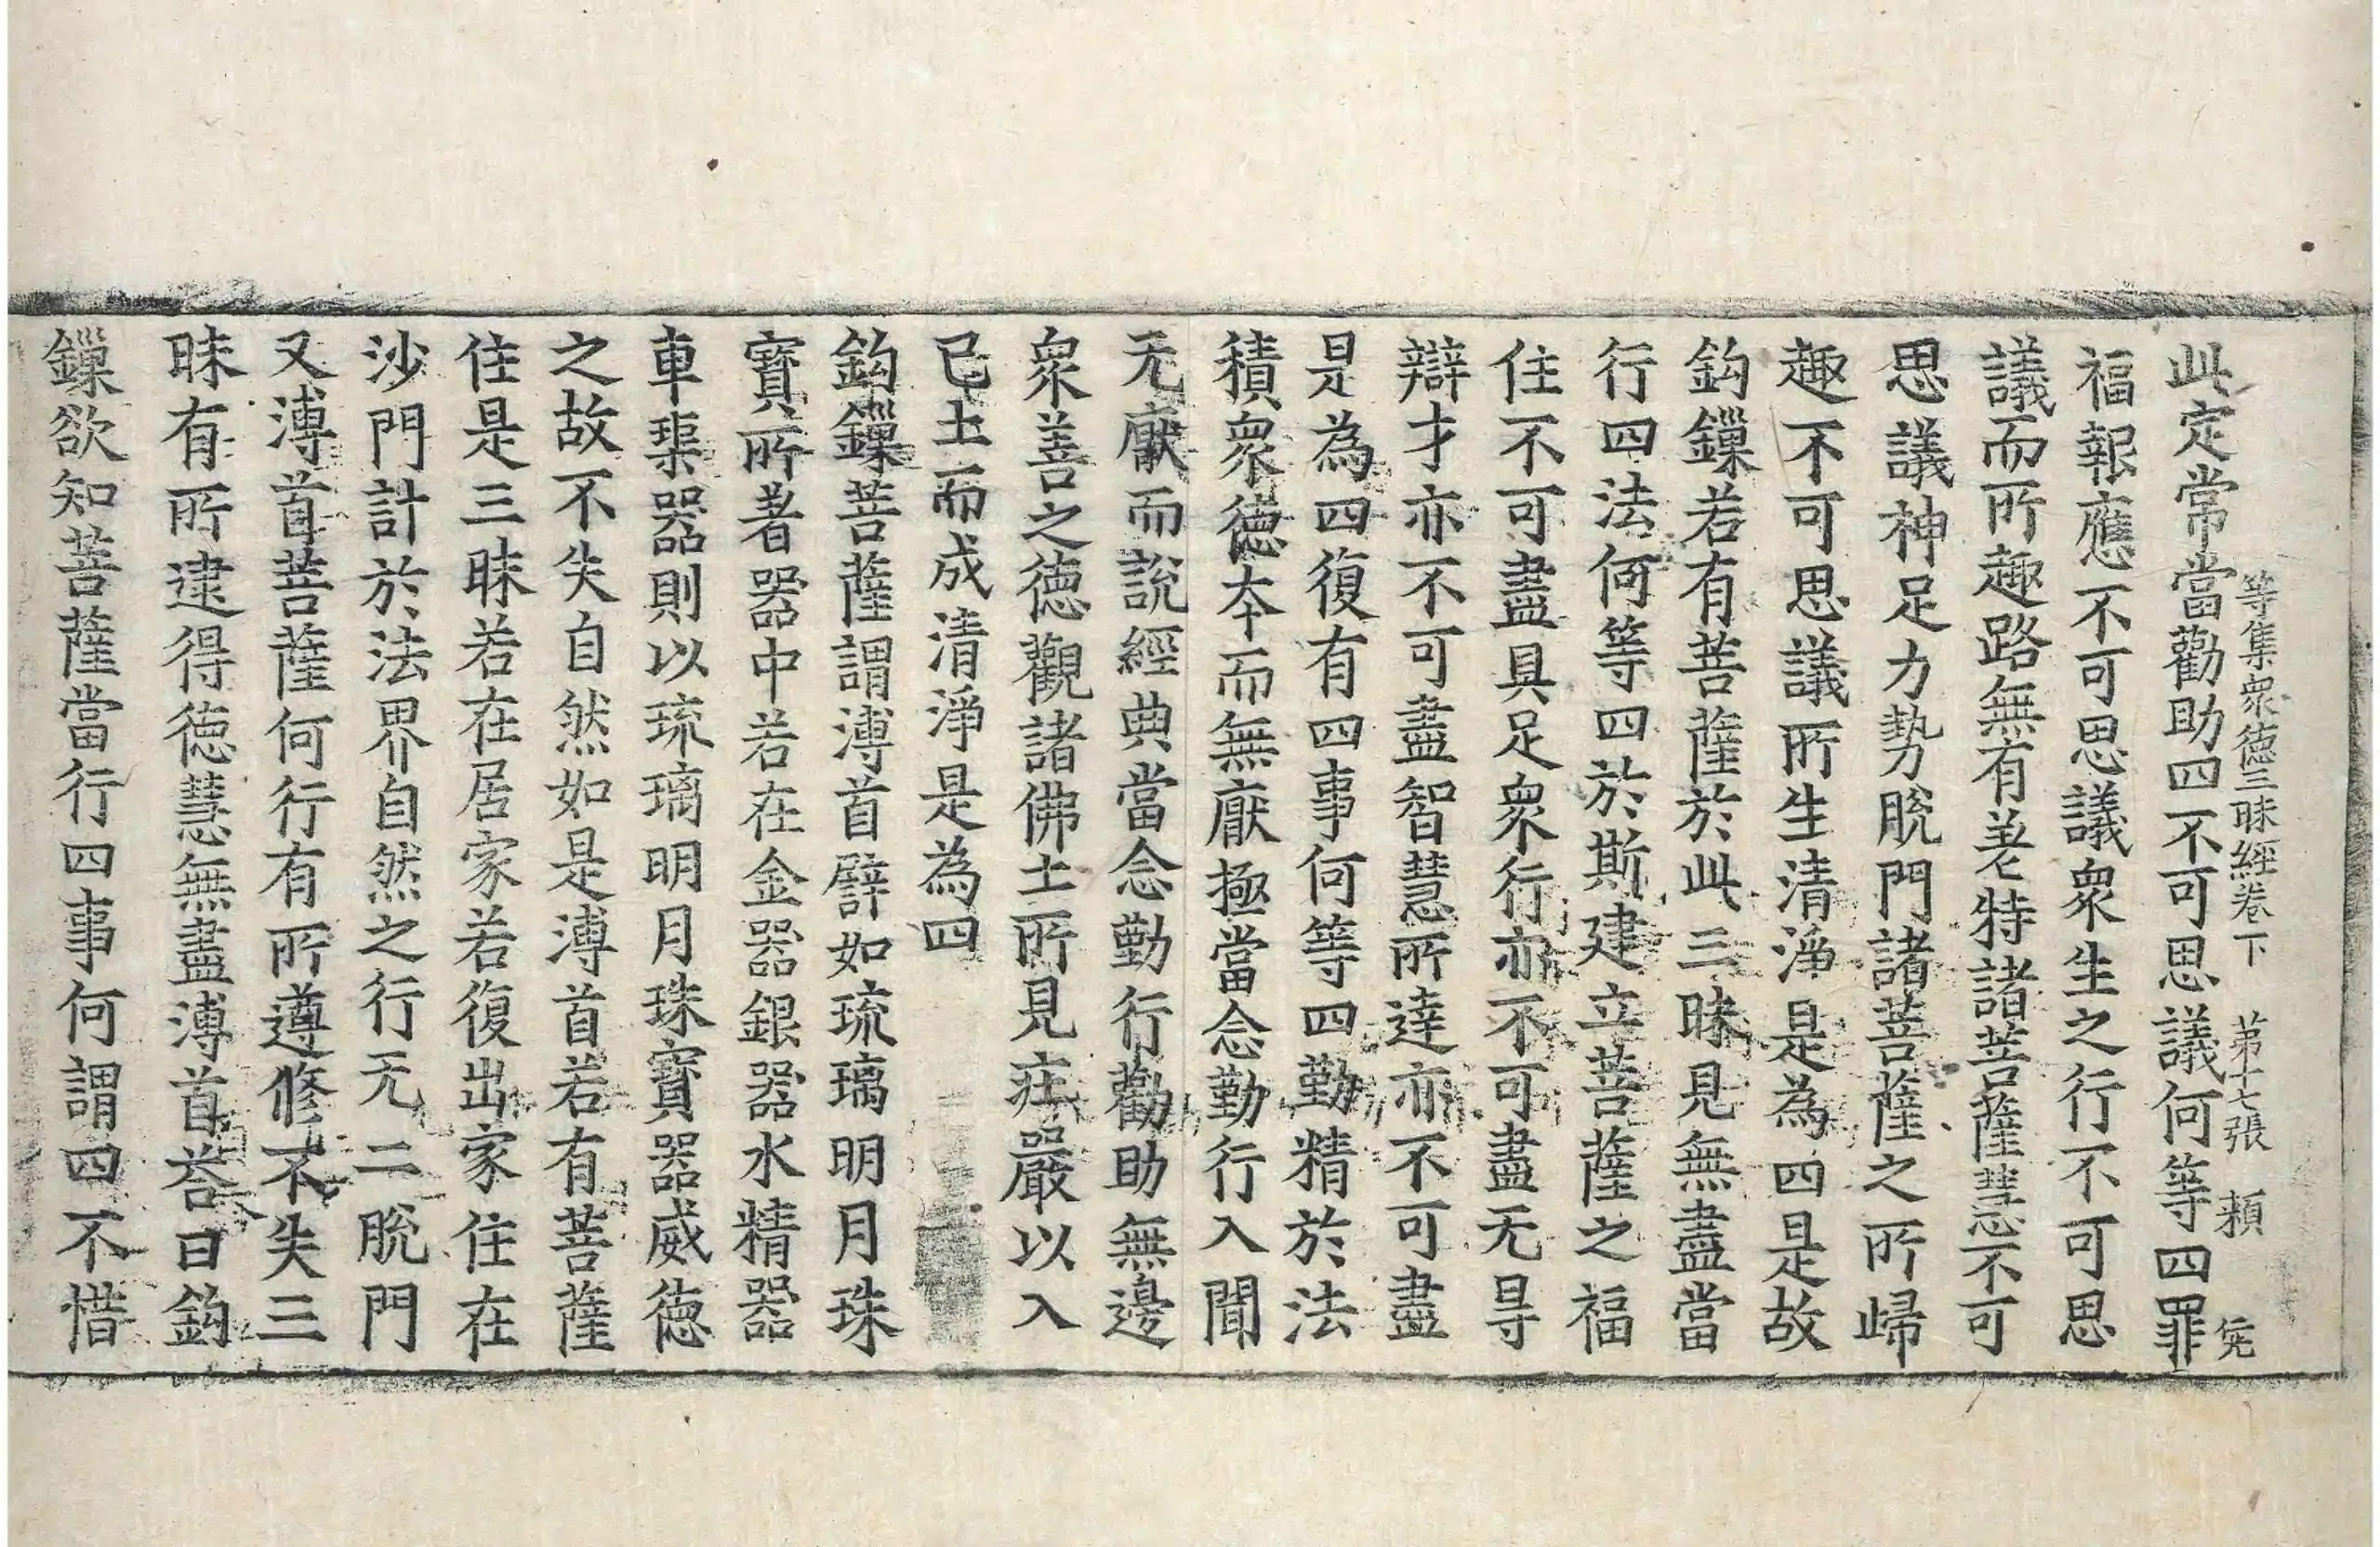 等集衆德三昧經卷下 第十七張 頼 𠑽
此定常當勸助四不可思議何等四罪
福報應不可思議衆生之行不可思
議而所趣路無有差特諸菩薩慧不可
思議神足力勢脫門諸菩薩之所歸
趣不可思議所生清淨是為四是故
鉤鏁若有菩薩於此三昧見無盡當
行四法何等四於斯建立菩薩之福
住不可盡具足衆行亦不可盡无㝵
辯才亦不可盡智慧所達亦不可盡
是為四復有四事何等四勤精於法
積衆德本而無厭極當念勤行入聞
无厭而說經典當念勤行勸助無邊
衆善之德觀諸佛土所見莊嚴以入
已土而成清淨是為四
鉤鏁菩薩謂溥首譬如琉璃明月珠
寶所著器中若在金器銀器水精器
車𤦲器則以琉璃明月珠寶器威德
之故不失自然如是溥首若有菩薩
住是三昧若在居家若復出家住在
沙門計於法界自然之行无二脫門
又溥首菩薩何行有所遵修不失三
昧有所逮得德慧無盡溥首荅曰鉤
鏁欲知菩薩當行四事何謂四不惜